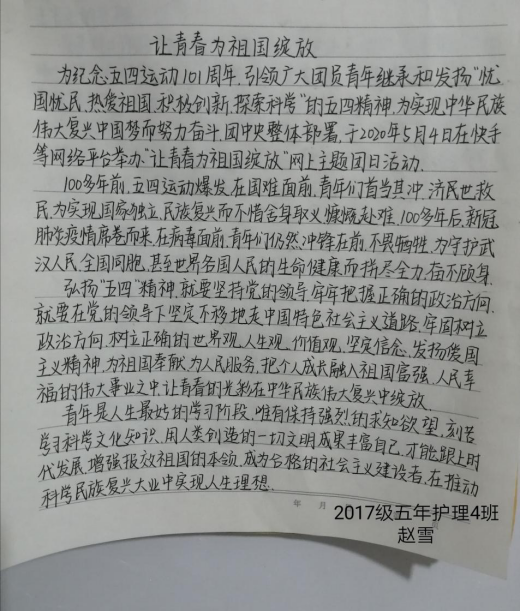 让青春为祖国绽放
为纪念五四运动101周年,引领广大团员青年继承和发扬“忧
国忧民、热爱祖国、积极创新、探索科学”的五四精神,为实现中华民族
伟大复兴中国梦而努力奋斗,团中央整体部署,于2020年5月4日在快手
等网络平台举办“让青春为祖国绽放”网上主题团日活动.
100多年前,五四运动爆发,在国难面前,青年们首当其冲,济民世救
民,为实现国家独立,民族复兴而不惜舍身取义慷慨赴难,100多年后,新冠
肺炎疫情席卷而来,在病毒面前,青年们仍然冲锋在前,不畏牺牲,为守护武
汉人民,全国同胞,甚至世界各国人民的生命健康而拼尽全力,奋不顾身.
弘扬“五四”精神,就要坚持党的领导,牢牢把握正确的政治方向,
就要在党的领导下坚定不移地走中国特色社会主义道路,牢固树立
政治方向,树立正确的世界观,人生观,价值观,坚定信念,发扬爱国
主义精神,为祖国奉献,为人民服务,把个人成长融入祖国富强,人民幸
福的伟大事业之中,让青春的光彩在中华民族伟大复兴中绽放.
青年是人生最好的学习阶段,唯有保持强烈的求知欲望,刻苦
学习科学文化知识,用人类创造的一切文明成果丰富自己,才能跟上时
代发展,增强报效祖国的本领,成为合格的社会主义建设者,在推动
科学民族复兴大业中实现人生理想.
年 月
2017级五年护理4班
赵雪